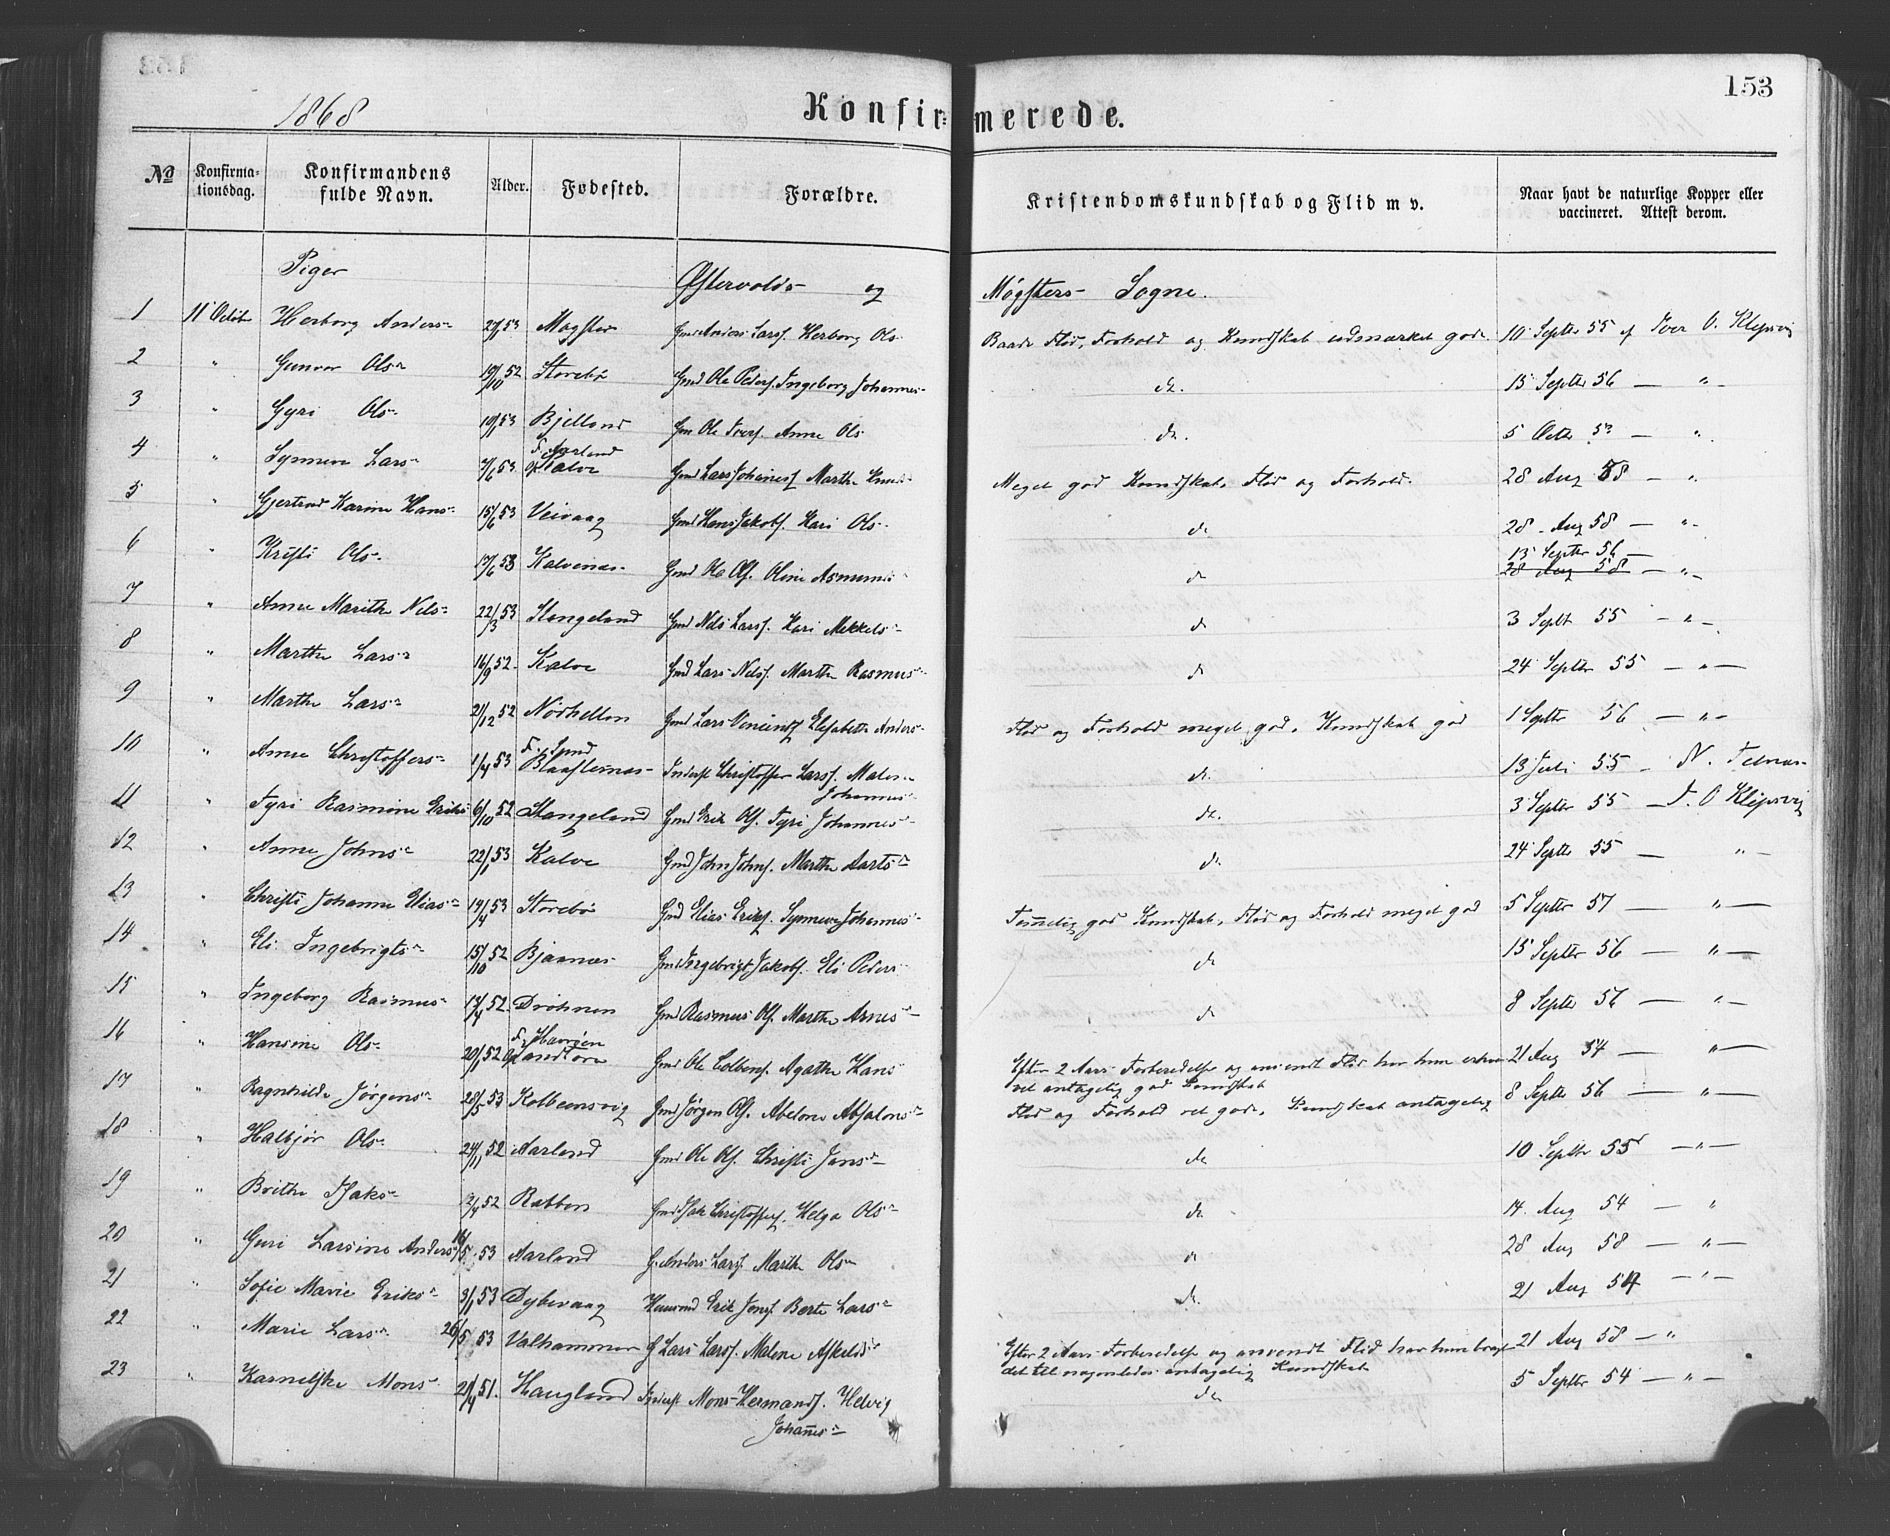 153
1868
Konfirmerede.
No Konfirmationsdag. Konfirmandens fulde Navn. Alder. Fødested. Forældre. Kristendomskundskab og Flid m v. Naar havt de naturlige Kopper eller vaccineret. Attest derom.
Piger Østervolds og Møgsters Sogne.
1 11 Octbr Herborg Anders- 53 Møgster Gmd Anders Larss. Herborg Ols- Baade Flid, Forhold og Kundskab udmærket gode 10 Septbr 55 af Iver O. Klepsvig
2 " Gunvor Ols- 19/10 52 Storebø Gmd Ole Peders. Ingeborg Johannes- do. 15 Septbr 56 — " —
3 " Gyri Ols- 53 Bjelland Gm Ole Ivers. Anne Ols- do. 5 Octbr — "
4 " Synneve Lars- 53 F. Aarland Op Kalve Gmd Lars Johaness Marthe Meget god Kundskab, Flid og Forhold. 28 Aug 58 — "
5 " Gjertrud Karine Hans- 15/6 53 Veivaag Gmd Hans Jakobs. Kari Ols- do 28 Aug 58 — "
6 " Kristi Ols- 53 Kalvenæs Gmd Ole Ols. Oline Asmunds- do 15 Septbr 56 —
28 Aug 58 — " —
7 " Anne Marithe Nels- 22/3 53 Stangeland Gmd Nels Larss. Kari Mikkels- do 3 Septb 55 — " —
8 " Marthe Lars- 16/9 52. Kalve Gmd Lars Nelss. Marthe Rasmus- do 24 Septbr 55 — " —
9 " Marthe Lars- 21/12 52 Nordhellen Gmd Lars Elisabeth Anders- Flid og Forhold meget god. Kundskab god 1 Septbr 56 — " —
10 " Anne Christoffers- 1/4 53 F. Sund Inderst Christoffer Larss. Malene Johannes- do. 13 Juli 55 — N.
11 " Tyri Rasmine Eriks- 6/10 52 Stangeland Gmd Erik Ols. Tyri Johannes- do. 3 Septbr 55 — I. O Klepsvig
12 " Anne Johns- 22/1 53 Kalve Gmd John Johns. Marthe Aarts- do 24 Septbr 55 — " —
13 " Christi Johanne Elias- 14/4 53 Storebø Gmd Elias Eriks. Synneve Johannes- Temmelig god Kundskab, Flid og Forhold meget god 5 Septbr 57 — " —
14 " Eli Ingebrigts- 15/10 52 Bjarnæs Gmd Ingebrigt Jakobs. Eli Peders- do 15 Septbr 56 — " —
15 " Ingeborg Rasmus- 52. Drønen Gmd Rasmus Ols. Marthe Arnes- do 8 Septbr 56 — " —
16 " Hansine Ols- 20/1 52 F. Havrøen Op Sandtorv Gmd Ole Colbens. Agathe Hans- Efter 2 Aars Forberedelse og anvendt Flid har hun erhvervet antagelig god Kundskab 21 Aug 54 — " —
17 " Ragnhilde Jørgens- 28/5 53 Kolbeensvig Gmd Jørgen Ols. Abelone Absalons- Flid og Forhold ret gode. Kundskab antagelig 8 Septbr 56 — " —
18 " Halbjør Ols- 24/11 52 Aarland Gmd Ole Ols. Christi Jens- do 10 Septbr 55 — " —
19 " Brithe Isaks- 12/4 52 Rabben Gmd Isak Christoffers. Helga Ols- do. 14 Aug 54 — "
20 " Guri Larsine Anders- 53 Aarland G. Anders Larss. Marithe Ols- do 28 Aug 58 — " —
21 " Sofie Marie Eriks- 3/1 53 Dybevaag Huusmd Erik Jons. Berte Lars- do. 21 Aug 54 — " —
22 " Marie Lars- 26/5 53 Valhammer G Lars Larss. Malene Askelds- Efter 2 Aars Forberedelse og anvendt Flid har hun bragt det til nogenledes antagelig Kundskab 21 Aug 58 — "
23 " Karneliske Mons- 21/4 51. Haugland Inderst Mons Hermands. Helvig Johannes- do 5 Septbr 54 — " —